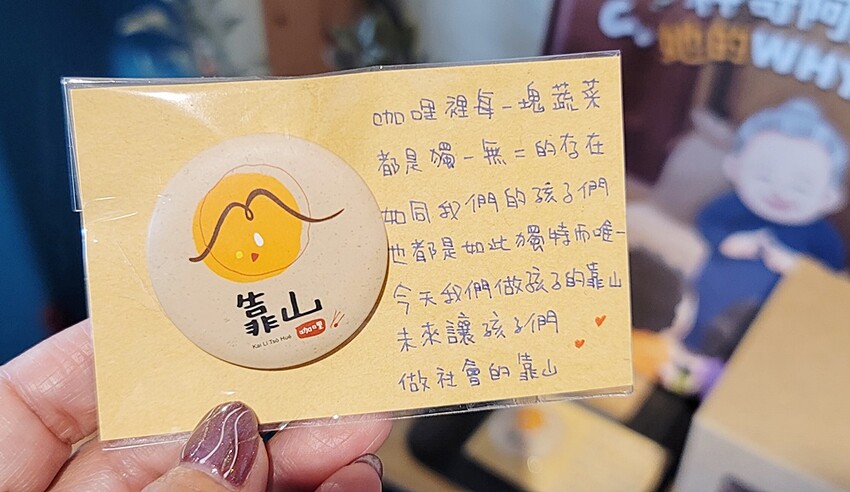 咖哩裡每一塊蔬菜
都是獨一無二的存在
如同我們的孩子們
也都是如此獨特而唯一
今天我們做孩子的靠山
未來讓孩子們
做社會的靠山
靠山
咖哩
Kai Li Tso Hue
她的WHY